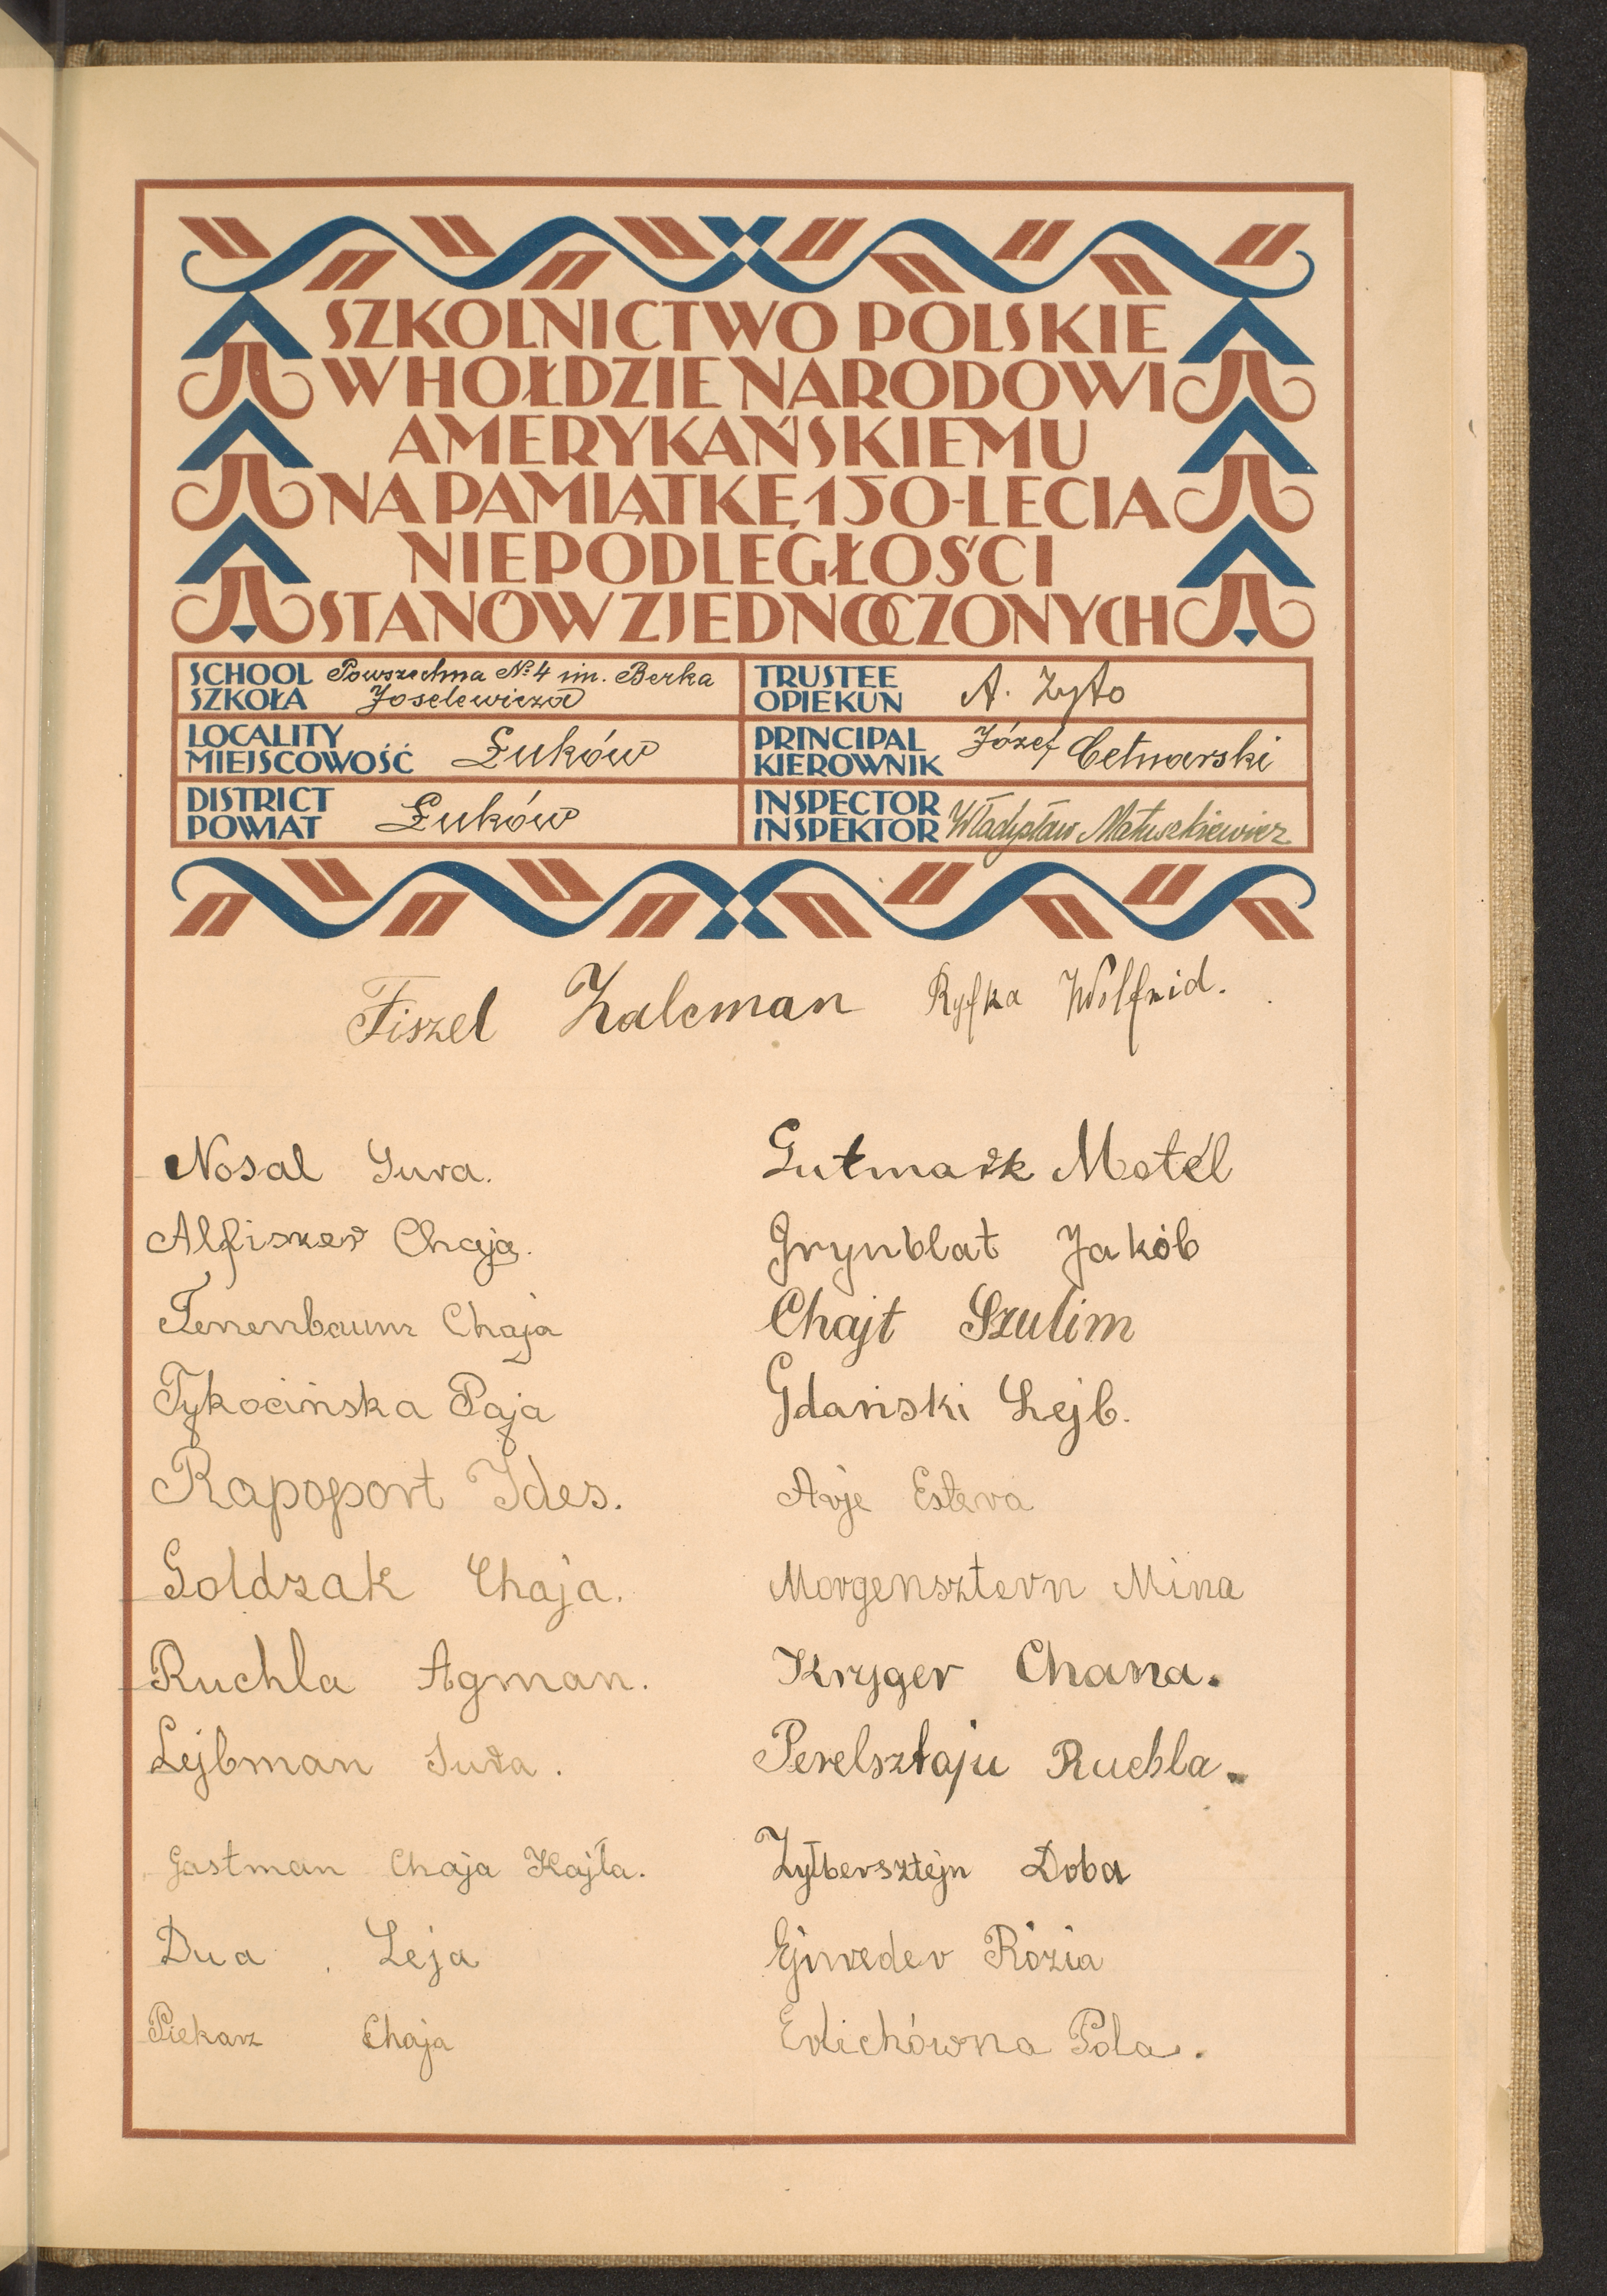 SZKOLNICTWO POLSKIE
W HOŁDZIE NARODOWI
AMERYKAŃSKIEMU
NA PAMIĄTKĘ 150-LECIA
NIEPODLEGŁOŚCI
STANÓW ZJEDNOCZONYCH
SCHOOL SZKOŁA Powszechna № 4 im. Berka Joselewicza
TRUSTEE OPIEKUN A. Żyto
LOCALITY MIEJSCOWOŚĆ Łuków
PRINCIPAL KIEROWNIK Józef Cetnarski
DISTRICT POWIAT Łuków
INSPECTOR INSPEKTOR Władysław Matuszkiewicz
Fiszel Zalcman Ryfka Wolfrid.
Nosal Sura.
Alfiszer Chaja.
Tenenbaum Chaja
Tykocińska Paja
Rapoport Ides.
Goldzak Chaja.
Ruchla Agman.
Lejbman Sura.
Gastman Chaja Kajla.
Dua Leja
Piekarz Chaja
Gutmark Motel
Grynblat Jakób
Chajt Szulim
Gdański Lejb.
Arje Estera
Morgensztern Mina
Kryger Chana.
Perelsztajn Ruchla.
Zylbersztejn Doba
Rózia
Erlichówna Pola.